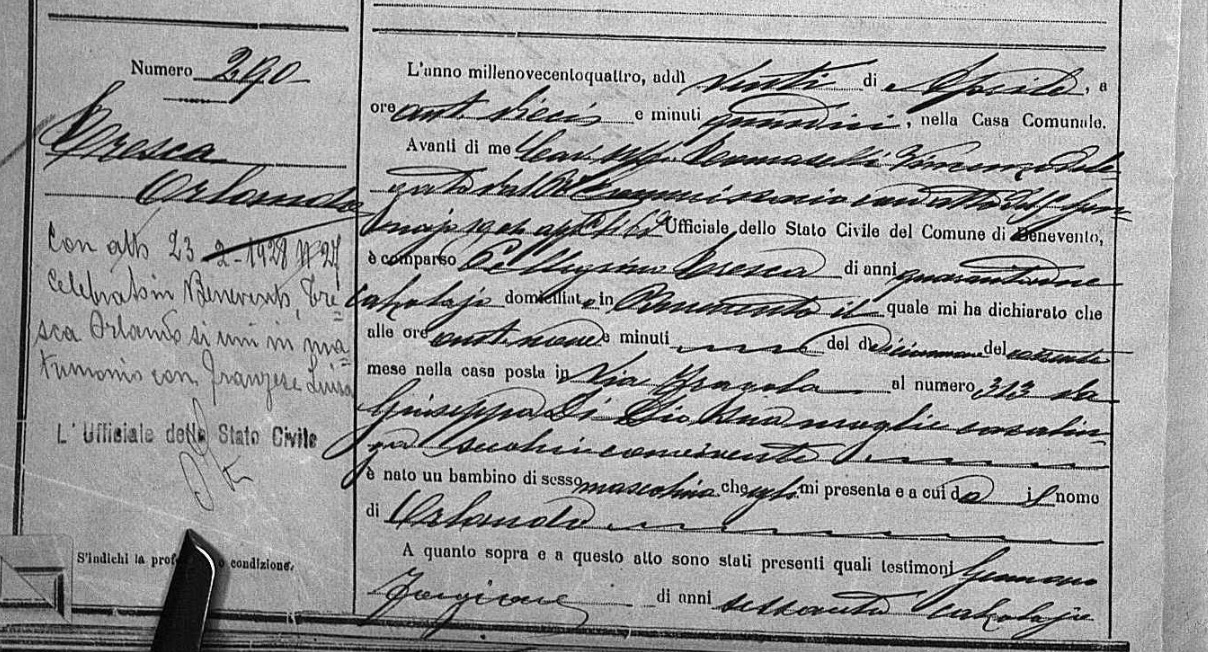 Numero 290
Tresca
Orlando
Con atto 23-2-1928 N 27
celebrato in Benevento, Tre=
sca Orlando si unì in ma=
trimonio con Franzese Luisa
L'Ufficiale dello Stato Civile
S'indichi la prof o condizione.
L'anno millenovecentoquattro, addì venti di Aprile, a
ore ant. dieci e minuti quindici, nella Casa Comunale.
Avanti di me Cav. Uff. Tommaselli dele
gato dal Commissario con atto
Ufficiale dello Stato Civile del Comune di Benevento,
è comparso Pellegrino Tresca di anni quarantanove
calzolajo domiciliato in Benevento il quale mi ha dichiarato che
alle ore ant. nove e minuti del dì diciannove del corrente
mese nella casa posta in Via al numero 313 da
Giuseppa Di Dio sua moglie casalin-
ga seco lui convivente
è nato un bambino di sesso mascolino che egli mi presenta e a cui dà il nome
di Orlando
A quanto sopra e a questo atto sono stati presenti quali testimoni Gennaro
Forgione di anni sessanta calzolajo